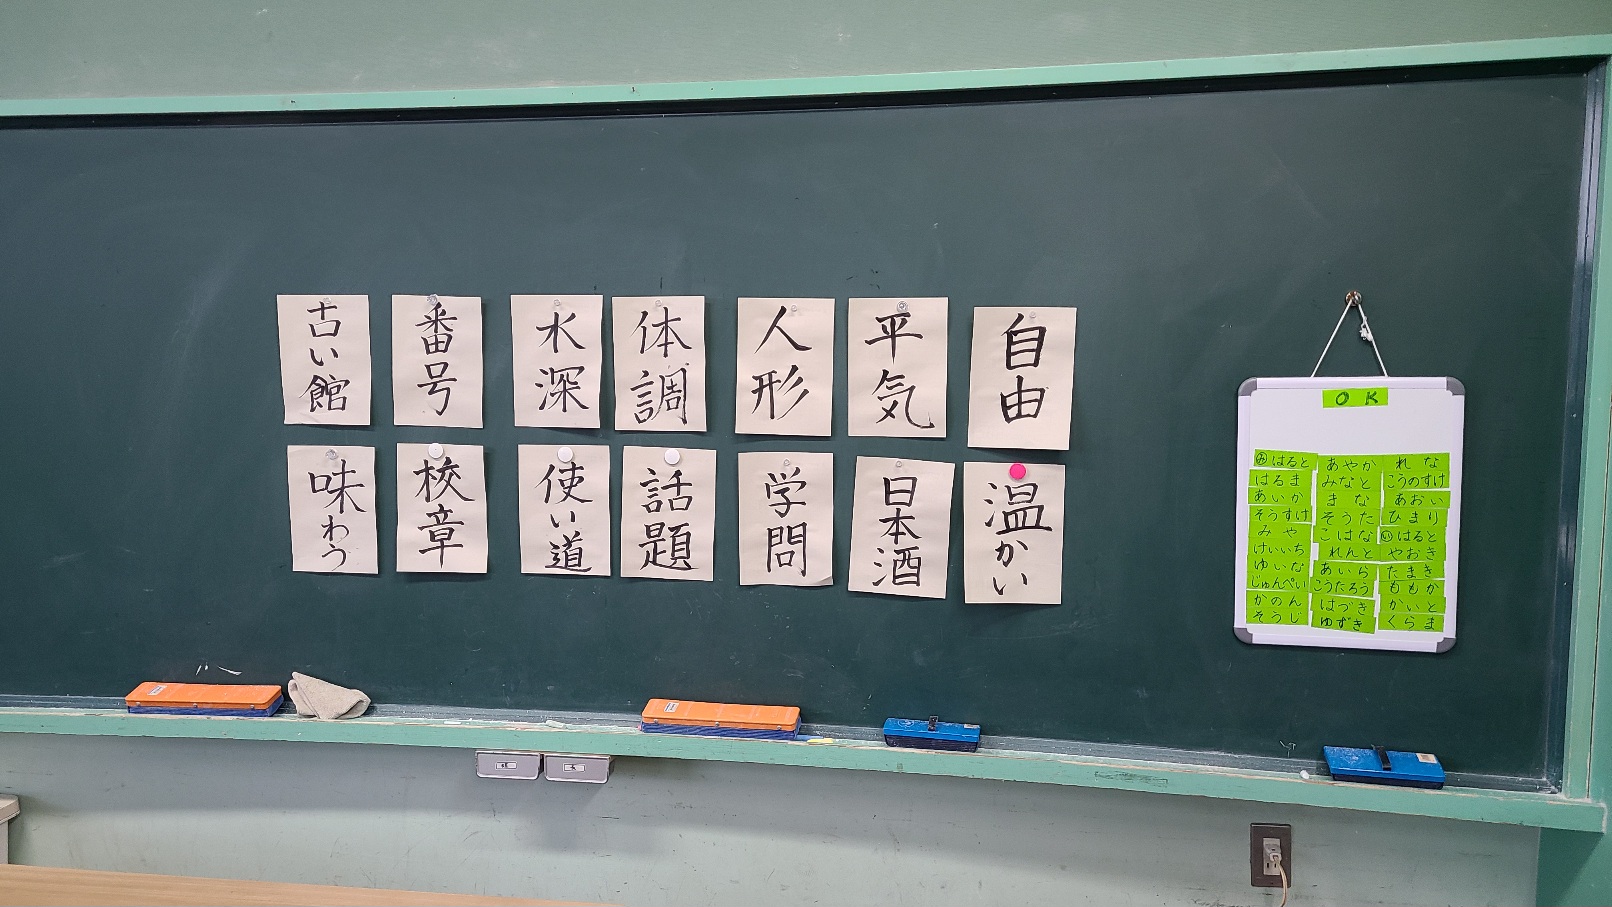 古い館
番号
水深
体調
人形
平気
自由
味わう
校章
使い道
話題
学問
日本酒
温かい
OK
はると
はるま
あいか
そうすけ
みや
けいいち
ゆいな
じゅんぺい
かのん
そうじ
あやか
みなと
まな
そうた
こはな
れんと
あいら
こうたろう
はづき
ゆずき
れな
こうのすけ
あおい
ひまり
はると
やおき
たまき
ももか
かいと
くらま